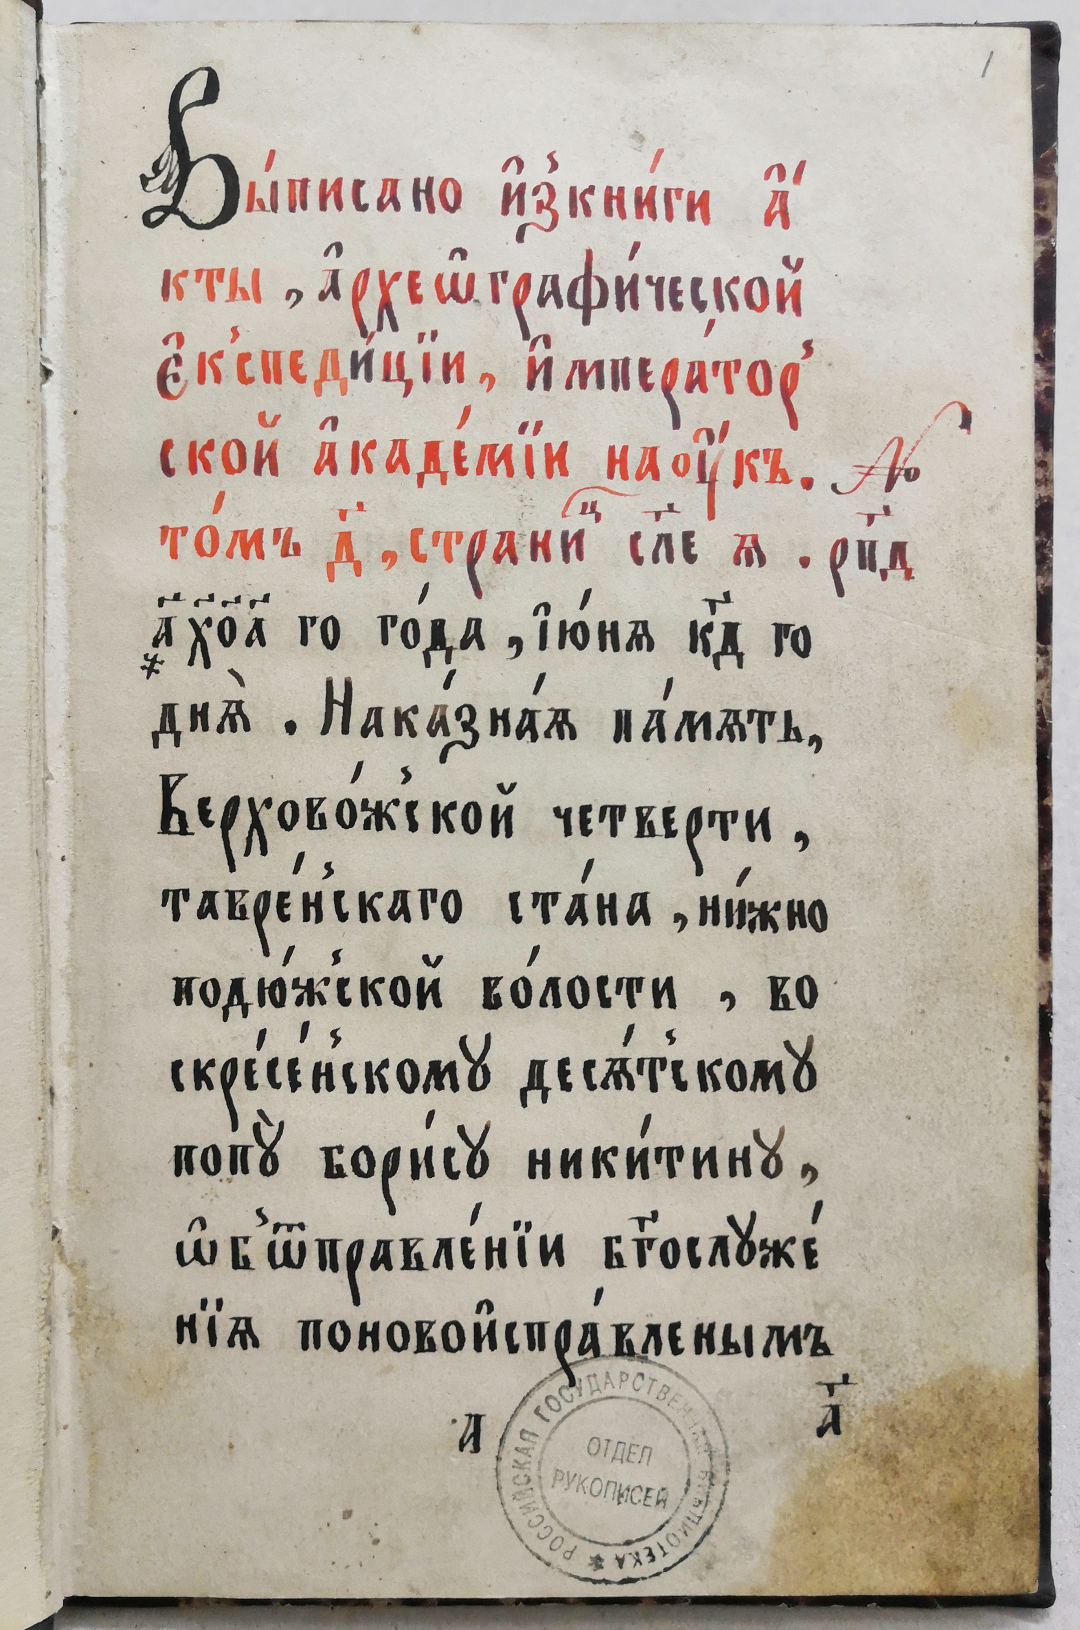 1
Вы́писано и҆з̾кни́ги а҆́
кты, а҆рхеѡ҆графи́ческой
є҆к̾спеди́цїи, и҆мпера́тор̾
ской а҆каде́мїи наоу҆́къ. №
то́мъ д҃, страниⷰ҇ сл҃е ѧ. рп҃д
҂а҃х҃о҃а҃ го го́да, і҆ю́нѧ к҃д го
днѧ̀. Нака́зна́ѧ па́мѧть,
Верхово́ж̾ской четверти,
тавре́н̾скаго ста́на, ни́жно
подю́ж̾ской во́лости, во
скре́се́н̾скому десѧ́т̾скому
попꙋ̀ бори́сꙋ ники́тинꙋ,
ѡ҆б̾ѿправле́нїи бг҃ослꙋже́
нїѧ поновои҆спра́вленымъ
а
а҃
РОССИЙСКАЯ ГОСУДАРСТВЕННАЯ БИБЛИОТЕКА
ОТДЕЛ
РУКОПИСЕЙ